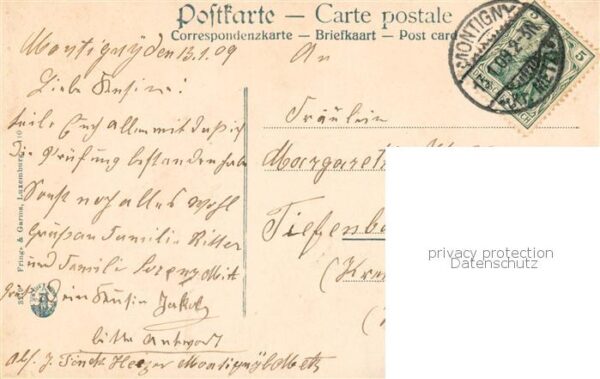 Postkarte – Carte postale
Correspondenzkarte – Briefkaart – Post card
MONTIGNY
METZ
5
Montigny, den 13.1.09
An
Liebe Cousine!
Fräulein
teile Euch allen mit daß ich
die Prüfung bestanden habe
Margarete
Sonst noch alles wohl
Grüße an Familie Ritter
Tiefenb
und Familie Lorenz Mit
Gruß Dein Cousin Jakob
bitte Antwort
Abs. J. Heizer Montigny b/Metz
Fring & Garms, Luxemburg
privacy protection
Datenschutz